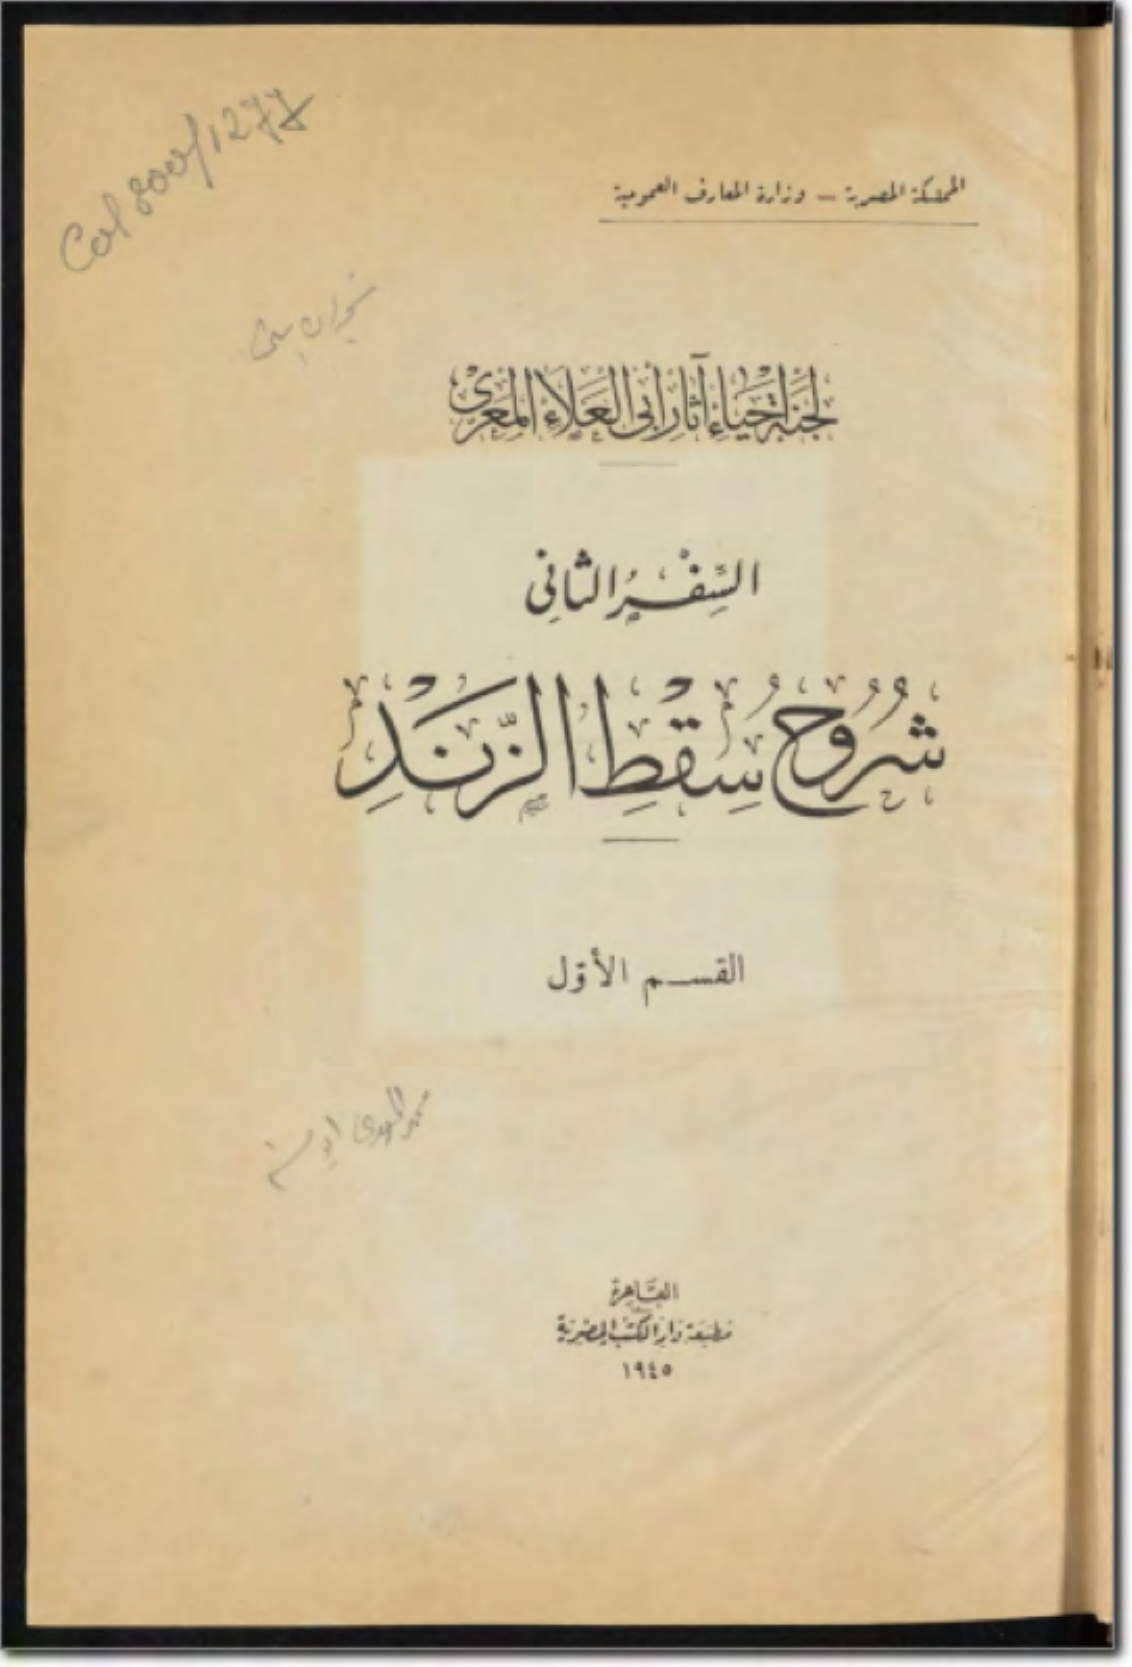 Cal 2001/1277
المملكة المصرية — وزارة المعارف العمومية
لجنة إحياء آثار أبي العلاء المعري
السِّفْرُ الثاني
شُرُوحُ سِقْطِ الزَّنْدِ
القسم الأوّل
القاهرة
مطبعة دار الكتب المصرية
١٩٤٥